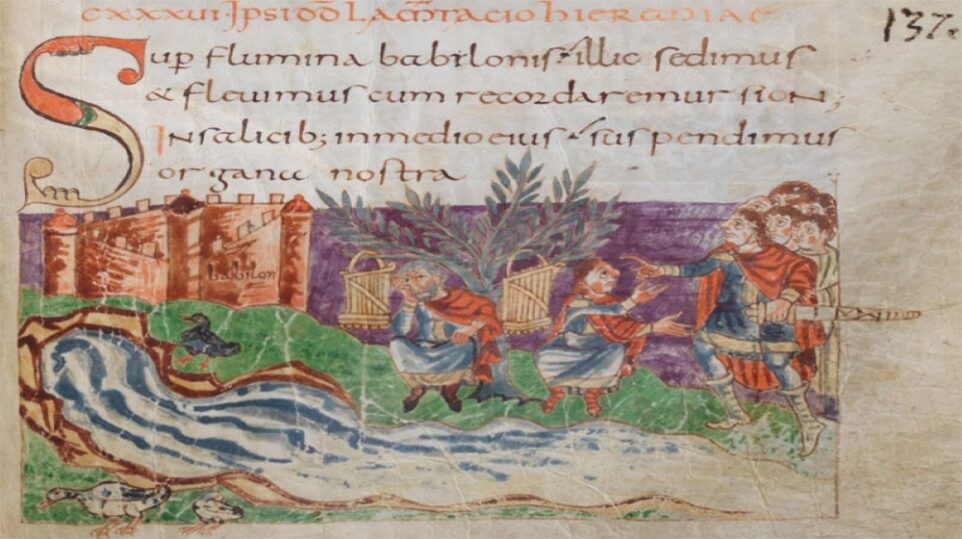 CXXXVI. IPSI DD LAM̄TACIO HIEREMIAE
137.
Sup flumina babilonis ⸵ illic sedimus
& fleuimus cum recordaremur sion;
In salicib; in medio eius ⸵ suspendimus
organa nostra
babilon